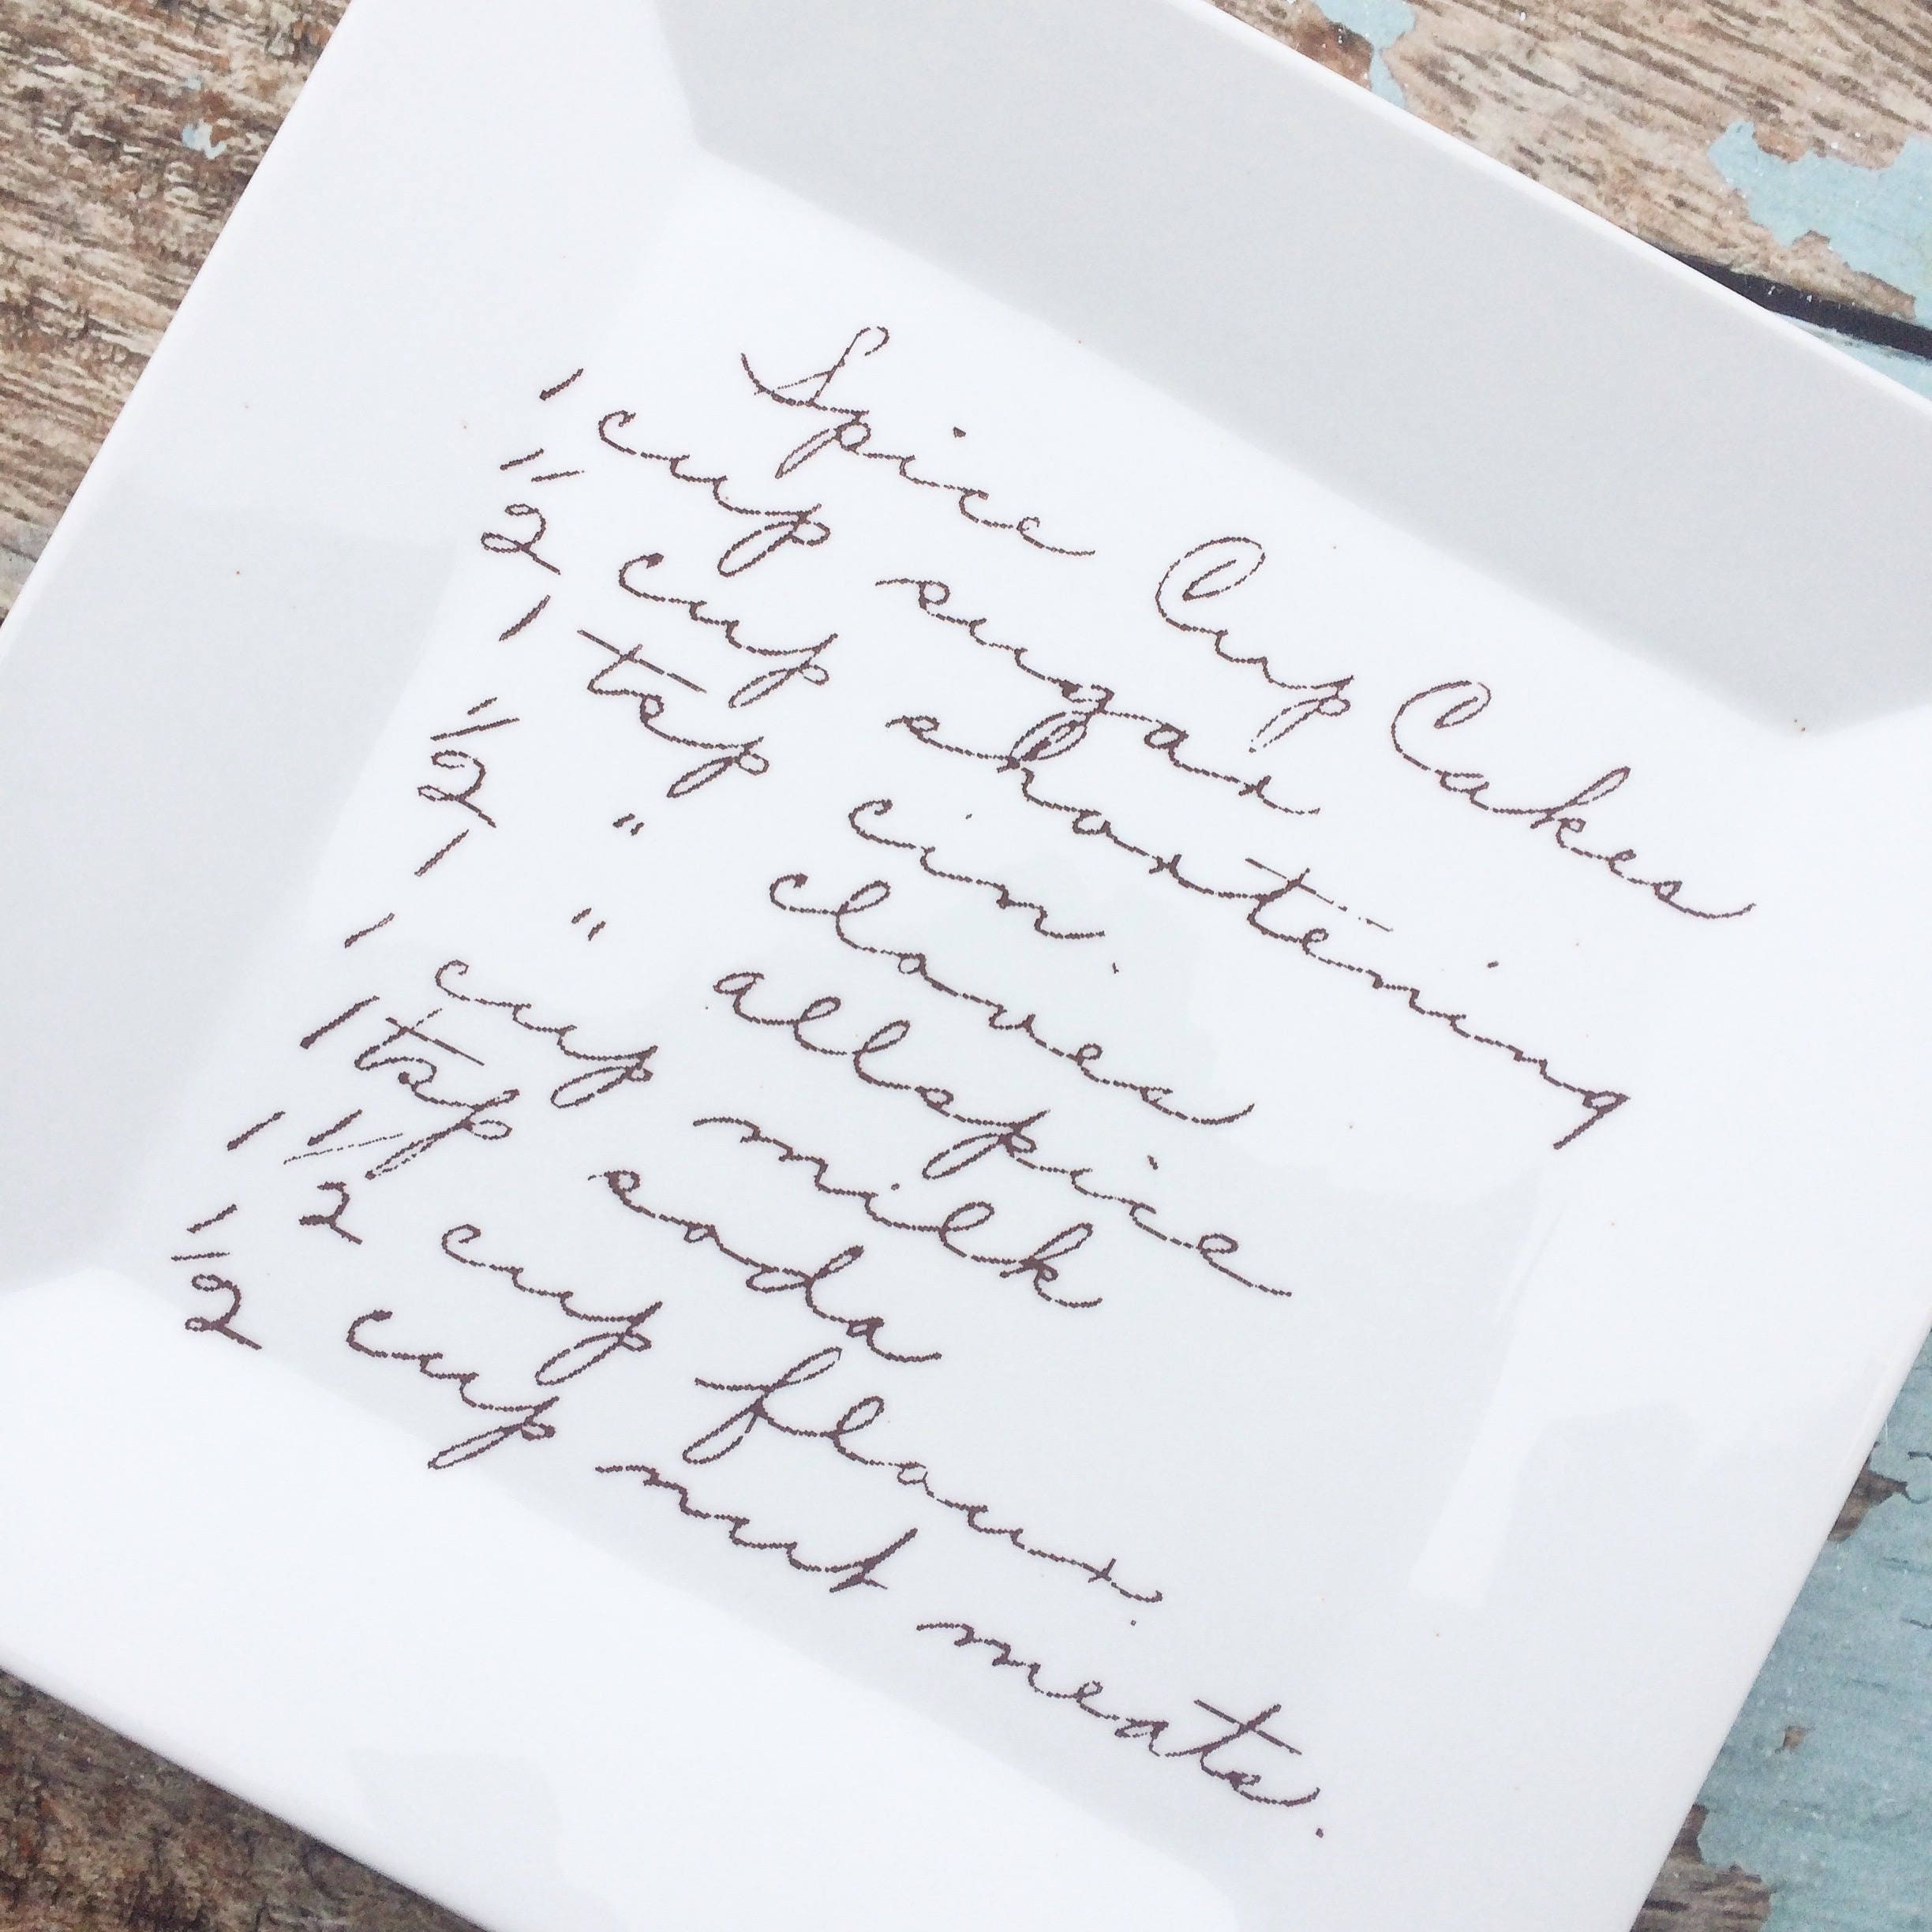 Spice Cup Cakes
1 cup sugar
1/2 cup shortening
1 tsp cin.
1/2 " cloves
1 " allspice
1 cup milk
1 tsp soda
1 1/2 cup flour.
1/2 cup nut meats.